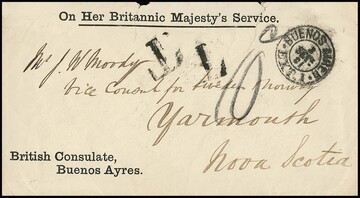 On Her Britannic Majesty's Service.
BUENOS AIRES
Mr J. W Moody
Vice Consul for Sweden & Norway
10
Yarmouth
Nova Scotia
British Consulate,
Buenos Ayres.